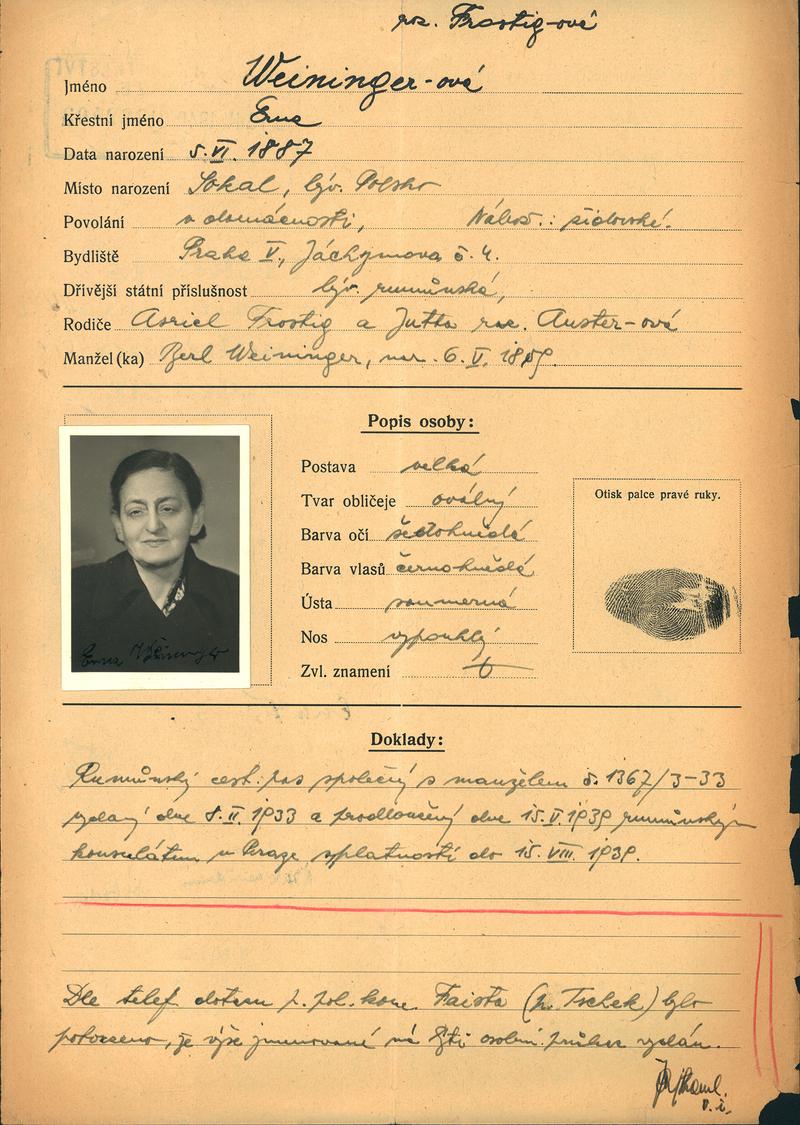 roz. Frostig-ová
Jméno Weininger-ová
Křestní jméno Erna
Data narození 5. VI. 1887
Místo narození Sokal, býv. Polsko
Povolání v domácnosti, Nábož.: židovské.
Bydliště Praha V., Jáchymova č. 4.
Dřívější státní příslušnost býv. rumunská,
Rodiče Asriel Frostig a Jutta roz. Auster-ová
Manžel (ka) Berl Weininger, nar. 6. V.
Popis osoby:
Postava velká
Tvar obličeje oválný
Barva očí šedohnědé
Barva vlasů černohnědé
Ústa souměrná
Nos vypouklý
Zvl. znamení
Otisk palce pravé ruky.
Erna Weininger
Doklady:
Rumunský cest. pas společný s manželem č. 1367/3-33
vydaný dne 8. II. 1933 a prodloužený dne 15. V. 1939 rumunským
konsulátem v Praze, splatností do 15. VIII. 1939.
Dle telef. dotazu p. pol. kom. Faista (p. Tschek) bylo
potvrzeno, že výše jmenované má býti osobní průkaz vydán.